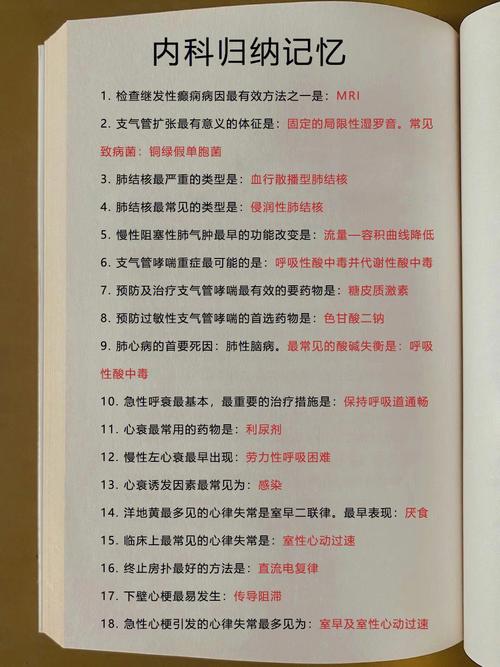 内科归纳记忆
1. 检查继发性癫痫病因最有效方法之一是：MRI
2. 支气管扩张最有意义的体征是：固定的局限性湿罗音。常见
致病菌：铜绿假单胞菌
3. 肺结核最严重的类型是：血行散播型肺结核
4. 肺结核最常见的类型是：侵润性肺结核
5. 慢性阻塞性肺气肿最早的功能改变是：流量—容积曲线降低
6. 支气管哮喘重症最可能的是：呼吸性酸中毒并代谢性酸中毒
7. 预防及治疗支气管哮喘最有效的要药物是：糖皮质激素
8. 预防过敏性支气管哮喘的首选药物是：色甘酸二钠
9. 肺心病的首要死因：肺性脑病。最常见的酸碱失衡是：呼吸
性酸中毒
10. 急性呼衰最基本，最重要的治疗措施是：保持呼吸道通畅
11. 心衰最常用的药物是：利尿剂
12. 慢性左心衰最早出现：劳力性呼吸困难
13. 心衰诱发因素最常见为：感染
14. 洋地黄最多见的心律失常是室早二联律。最早表现：厌食
15. 临床上最常见的心律失常是：室性心动过速
16. 终止房扑最好的方法是：直流电复律
17. 下壁心梗最易发生：传导阻滞
18. 急性心梗引发的心律失常最多见为：室早及室性心动过速